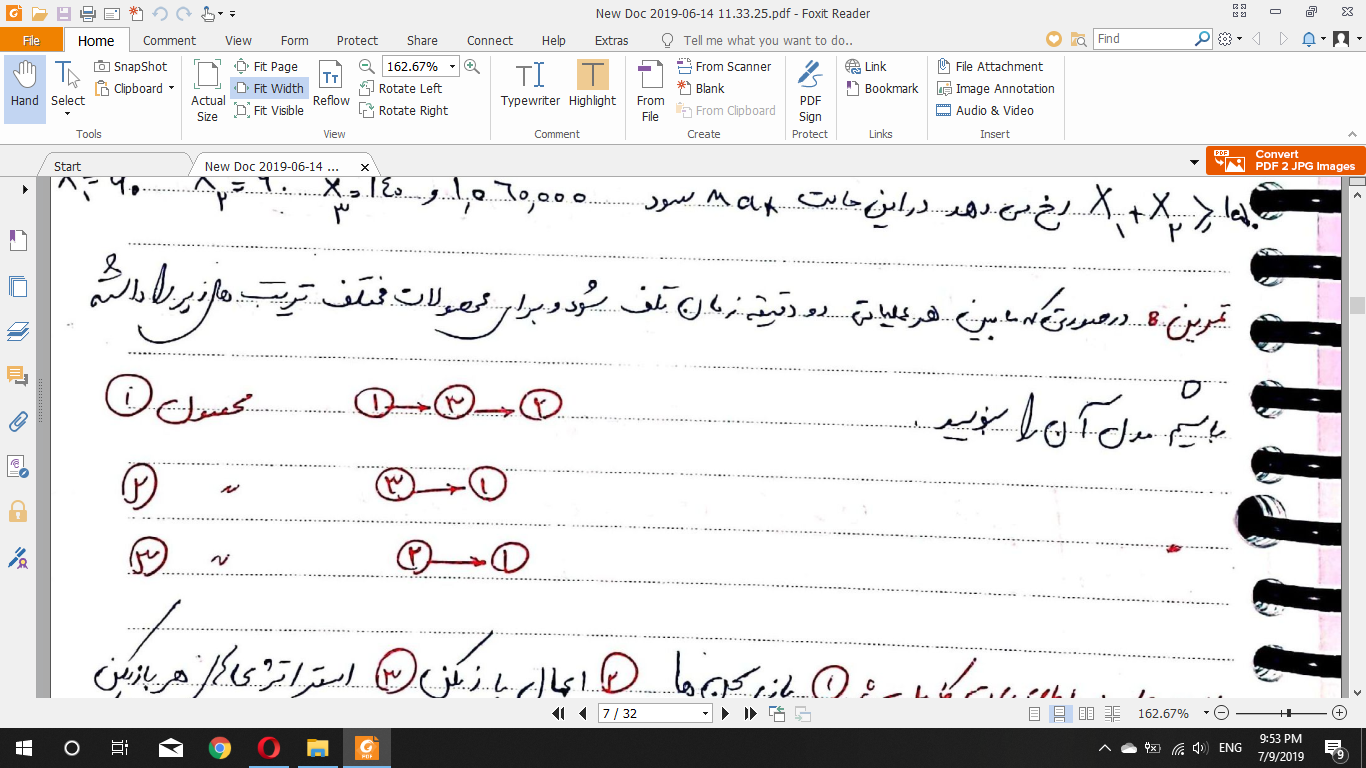 New Doc 2019-06-14 11.33.25.pdf - Foxit Reader
File Home Comment View Form Protect Share Connect Help Extras Tell me what you want to do.. Find
Hand
Select
SnapShot
Clipboard
Tools
Actual Size
Fit Page
Fit Width
Fit Visible
Reflow
162.67%
Rotate Left
Rotate Right
View
Typewriter
Highlight
Comment
From File
From Scanner
Blank
From Clipboard
Create
PDF Sign
Protect
Link
Bookmark
Links
File Attachment
Image Annotation
Audio & Video
Insert
Start
New Doc 2019-06-14 ...
Convert
PDF 2 JPG Images
X₁ + X₂ ≥ رخ می دهد در این حالت max سود ۱,۰۶۰,۰۰۰ و X₃=۱۴۰ X₂=۶۰
تمرین 8 در صورتی که مابین هر عملیات دو دقیقه زمان تلف شود و برای محصولات مختلف ترتیب های زیر را داشته
باشیم مدل آن را بنویسید.
محصول ۱ ۱ → ۳ → ۲
۲ " ۳ → ۱
۳ " ۲ → ۱
۱ بازیکن ها ۲ اعمال بازیکن ۳ استراتژی های هر بازیکن
7 / 32
162.67%
ENG
9:53 PM
7/9/2019
9